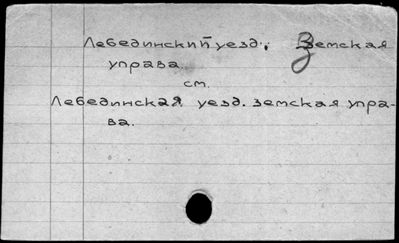 Лебединский уезд. Земская
управа
см.
Лебединская уезд. земская упра-
ва.